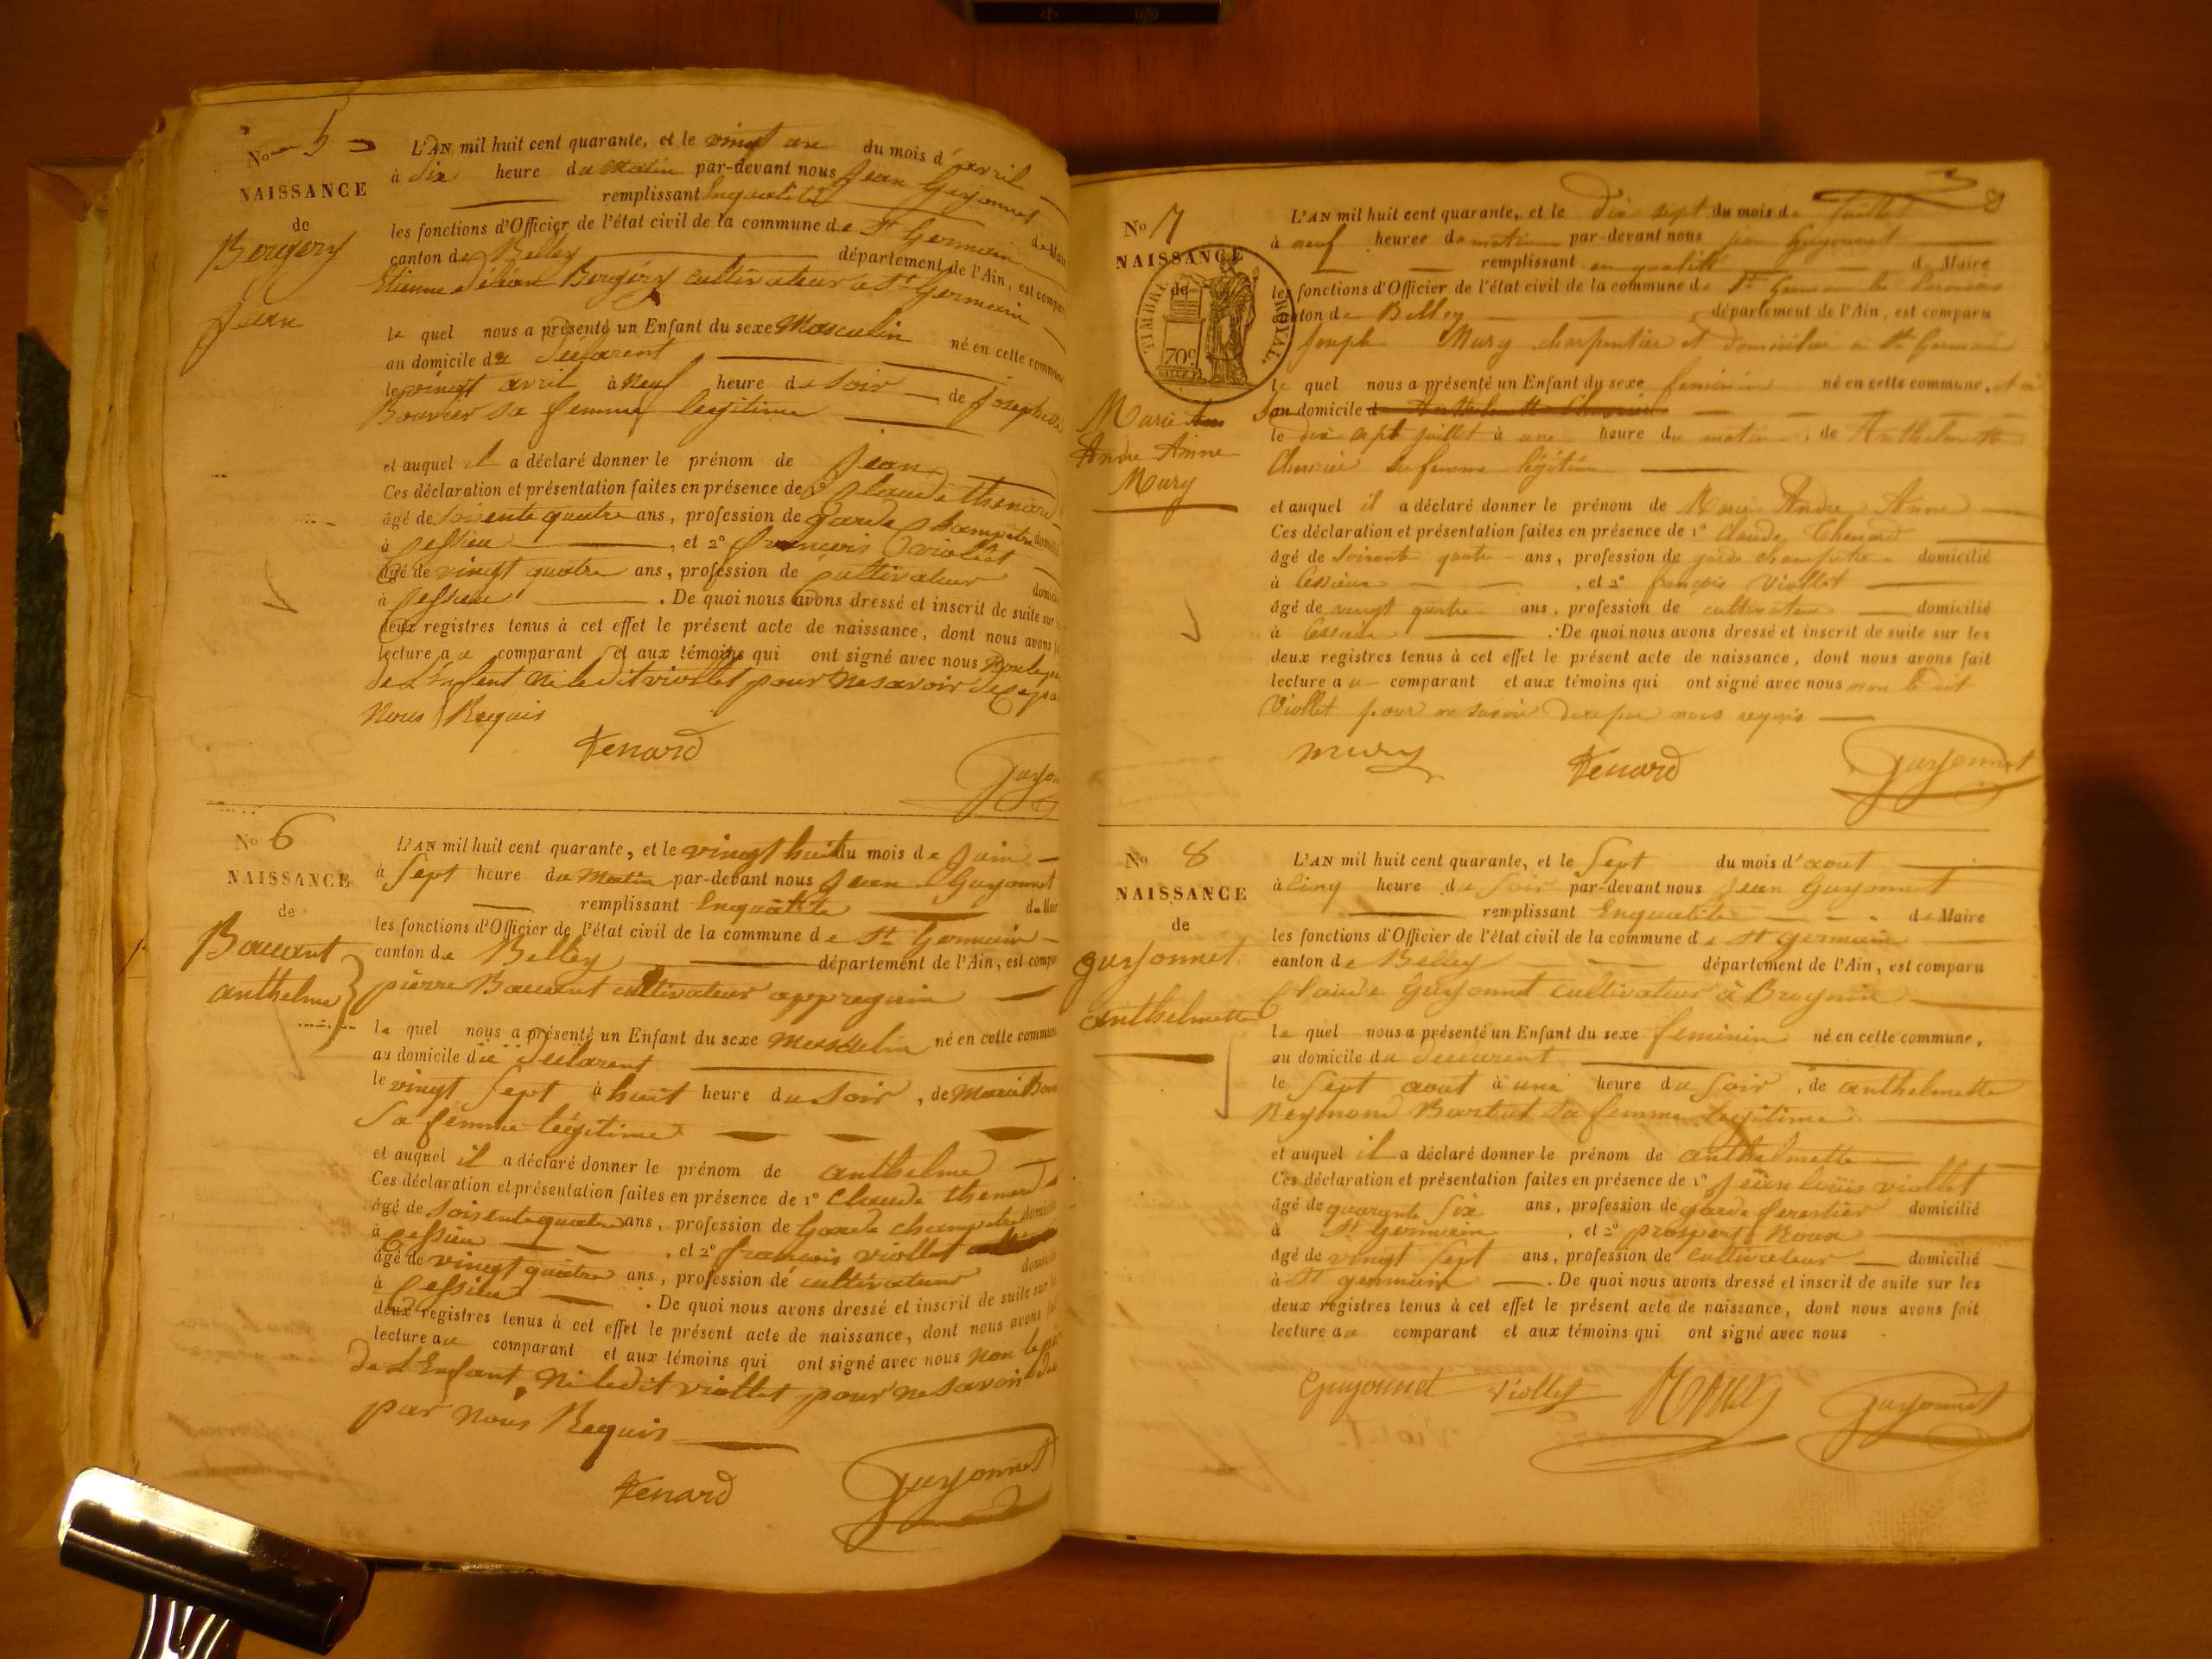 No 5
NAISSANCE
de
Bergery
Jean
L'AN mil huit cent quarante, et le vingt un du mois d'avril
à dix heure du matin par-devant nous Jean Guyonnet
remplissant Enqualité de Maire
les fonctions d'Officier de l'état civil de la commune de St Germain
canton de Belley département de l'Ain, est comparu
Etienne Bergery cultivateur a St Germain
le quel nous a présenté un Enfant du sexe Masculin né en cette commune
au domicile du déclarent
le vingt avril à neuf heure du soir, de Josephte
Bouvier sa femme legitime
et auquel il a déclaré donner le prénom de Jean
Ces déclaration et présentation faites en présence de 1° Claude thenard
âgé de soisente quatre ans, profession de Garde champetre domicilié
à Cessieu, et 2° francois Viollet
âgé de vingt quatre ans, profession de cultivateur domicilié
à Cessieu. De quoi nous avons dressé et inscrit de suite sur
deux registres tenus à cet effet le présent acte de naissance, dont nous avons
lecture au comparant et aux témoins qui ont signé avec nous Non le
de L'Enfent Ni ledit viollet pour ne savoir de ce
Nous Requis
Tenard
Guyon
No 6
NAISSANCE
de
Bauent
anthelme
L'AN mil huit cent quarante, et le vingt huit du mois de Juin
à Sept heure du Matin par-devant nous Jean Guyonnet
remplissant Enqualité de Maire
les fonctions d'Officier de l'état civil de la commune de St Germain
canton de Belley département de l'Ain, est comparu
pierre Bauent cultivateur appregnin
le quel nous a présenté un Enfant du sexe Masculin né en cette commune
au domicile du déclarent
le vingt Sept à huit heure du Soir, de Marie
Sa femme légitime
et auquel il a déclaré donner le prénom de anthelme
Ces déclaration et présentation faites en présence de 1° Claude thenard
âgé de soisente quatre ans, profession de Garde champetre domicilié
à Cessieu, et 2° francois viollet
âgé de vingt quatre ans, profession de cultivateur domicilié
à Cessieu. De quoi nous avons dressé et inscrit de suite sur
deux registres tenus à cet effet le présent acte de naissance, dont nous avons
lecture au comparant et aux témoins qui ont signé avec nous Non le
de L'Enfant, Ni ledit viollet pour ne savoir
par Nous Requis
Tenard
Guyonnet
No 7
NAISSANCE
de
TIMBRE ROYAL
70c
Marie
Andre Anne
Mury
L'AN mil huit cent quarante, et le dix sept du mois de Juillet
à neuf heures du matin par-devant nous jean Guyonnet
remplissant en qualité de Maire
les fonctions d'Officier de l'état civil de la commune de St Germain les Paroisses
canton de Belley département de l'Ain, est comparu
Joseph Mury charpentier et domicilié a St Germain
le quel nous a présenté un Enfant du sexe feminin né en cette commune, et a
son domicile
le dix sept juillet à une heure du matin, de Anthelmette
sa femme légitime
et auquel il a déclaré donner le prénom de Marie Andre Anne
Ces déclaration et présentation faites en présence de 1° Claude Thenard
âgé de soixante quatre ans, profession de garde champetre domicilié
à Cessieux, et 2° françois Viollet
âgé de vingt quatre ans, profession de cultivateur domicilié
à Cessieu. De quoi nous avons dressé et inscrit de suite sur les
deux registres tenus à cet effet le présent acte de naissance, dont nous avons fait
lecture au comparant et aux témoins qui ont signé avec nous non le dit
Viollet pour ne savoir de ce par nous requis
mury
Tenard
Guyonnet
No 8
NAISSANCE
de
guyonnet
anthelmette
L'AN mil huit cent quarante, et le Sept du mois d'aout
à Cinq heure du Soir par-devant nous Jean Guyonnet
remplissant Enqualité de Maire
les fonctions d'Officier de l'état civil de la commune de St germain
canton de Belley département de l'Ain, est comparu
Claude Guyonnet cultivateur à Brognin
le quel nous a présenté un Enfant du sexe feminin né en cette commune,
au domicile du declarent
le Sept aout à une heure du Soir, de anthelmette
Reymond Bartut sa femme legitime
et auquel il a déclaré donner le prénom de anthelmette
Ces déclaration et présentation faites en présence de 1° Jean louis viollet
âgé de quarente Six ans, profession de garde forestier domicilié
à St Germain, et 2° prospert Roux
âgé de vingt Sept ans, profession de Cultivateur domicilié
à St germain. De quoi nous avons dressé et inscrit de suite sur les
deux registres tenus à cet effet le présent acte de naissance, dont nous avons fait
lecture au comparant et aux témoins qui ont signé avec nous
Guyonnet Viollet Roux Guyonnet